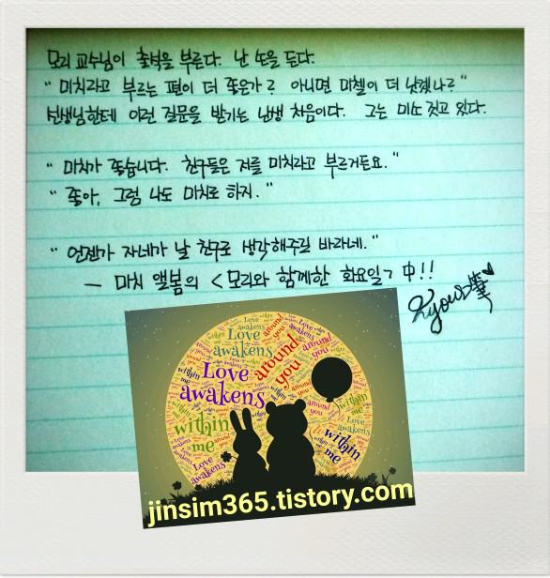 모리 교수님이 출석을 부른다. 난 손을 든다.
"미치라고 부르는 편이 더 좋은가? 아니면 미첼이 더 낫겠나?"
선생님한테 이런 질문을 받기는 난생 처음이다. 그는 미소 짓고 있다.
"미치가 좋습니다. 친구들은 저를 미치라고 부르거든요."
"좋아, 그럼 나도 미치로 하지."
"언젠가 자네가 날 친구로 생각해주길 바라네."
— 미치 앨봄의 <모리와 함께한 화요일> 中!!
Love awakens
around you
Love awakens
within me
within me
Love awakens
jinsim365.tistory.com